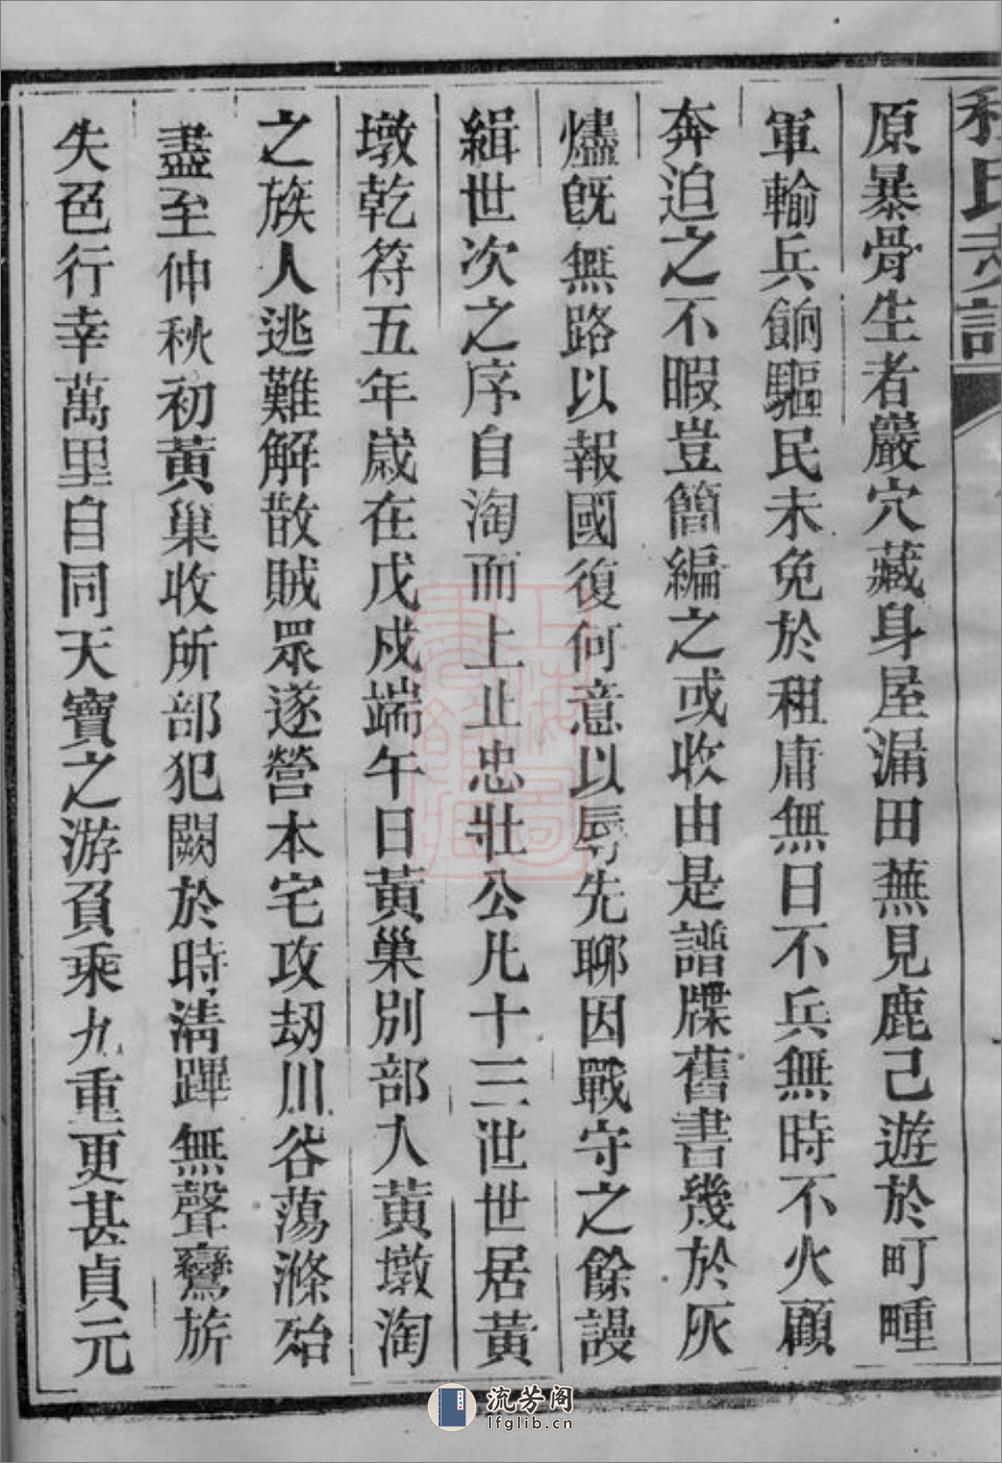 程氏支譜
原暴骨生者巖穴藏身屋漏田蕪見鹿己遊於町畽
軍輸兵餉驅民未免於租庸無日不兵無時不火顧
奔迫之不暇豈簡編之或收由是譜牒舊書幾於灰
燼旣無路以報國復何意以辱先聊因戰守之餘謾
緝世次之序自淘而上止忠壯公凡十三世世居黃
墩乾符五年嵗在戊戍端午日黃巢別部入黃墩淘
之族人逃難解散賊眾遂營本宅攻刼川谷蕩滌殆
盡至仲秋初黃巢收所部犯闕於時清蹕無聲鸞旂
失色行幸萬里自同天寶之游負乘九重更甚貞元
上海圖書館藏
流芳阁
lfglib.cn